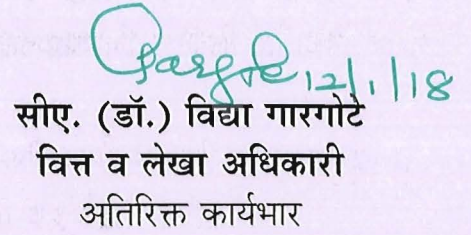 Gargote 12/1/18
सीए. (डॉ.) विद्या गारगोटे
वित्त व लेखा अधिकारी
अतिरिक्त कार्यभार